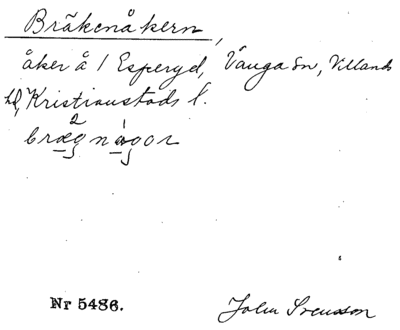 Bräkenåkern,
åker å 1 Esperyd, Vånga sn, Villands
hd, Kristianstads l.
Nr 5486.
John Svensson